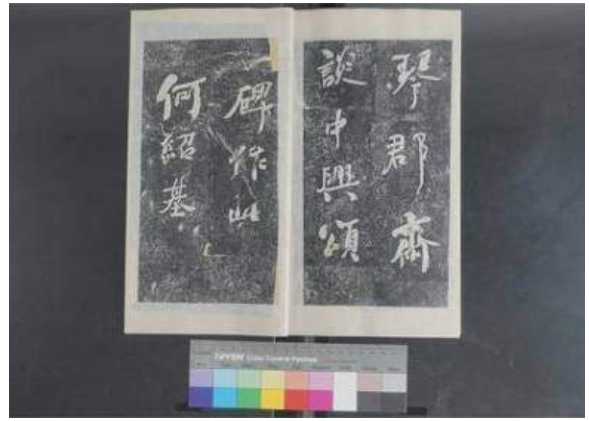 琴郡齋
談中興頌
碑作此
何紹基
TIFFEN Color Control Patches